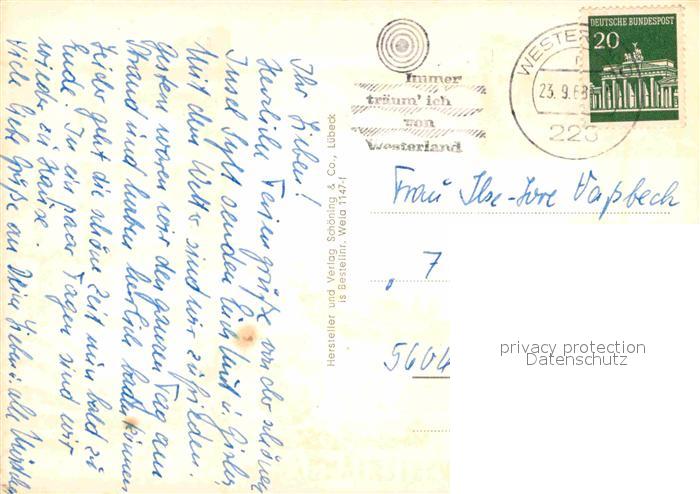 Ihr Lieben!
Herzliche Feriengrüße von der schönen
Insel Sylt senden Euch
Mit dem Wetter sind wir zufrieden.
Gestern waren wir den ganzen Tag am
Strand und haben herrlich baden können
Leider geht die schöne Zeit nun bald zu
Ende. In ein paar Tagen sind wir
wieder zu Hause.
Viele liebe Grüße an Deine Lieben alle
Hersteller und Verlag Schöning & Co., Lübeck
is Bestellnr. Wela 1147-I
Immer
träum' ich
von
Westerland
WESTER
23.9.68
223
DEUTSCHE BUNDESPOST
20
Frau Ilse-Lore
7
5604
privacy protection
Datenschutz